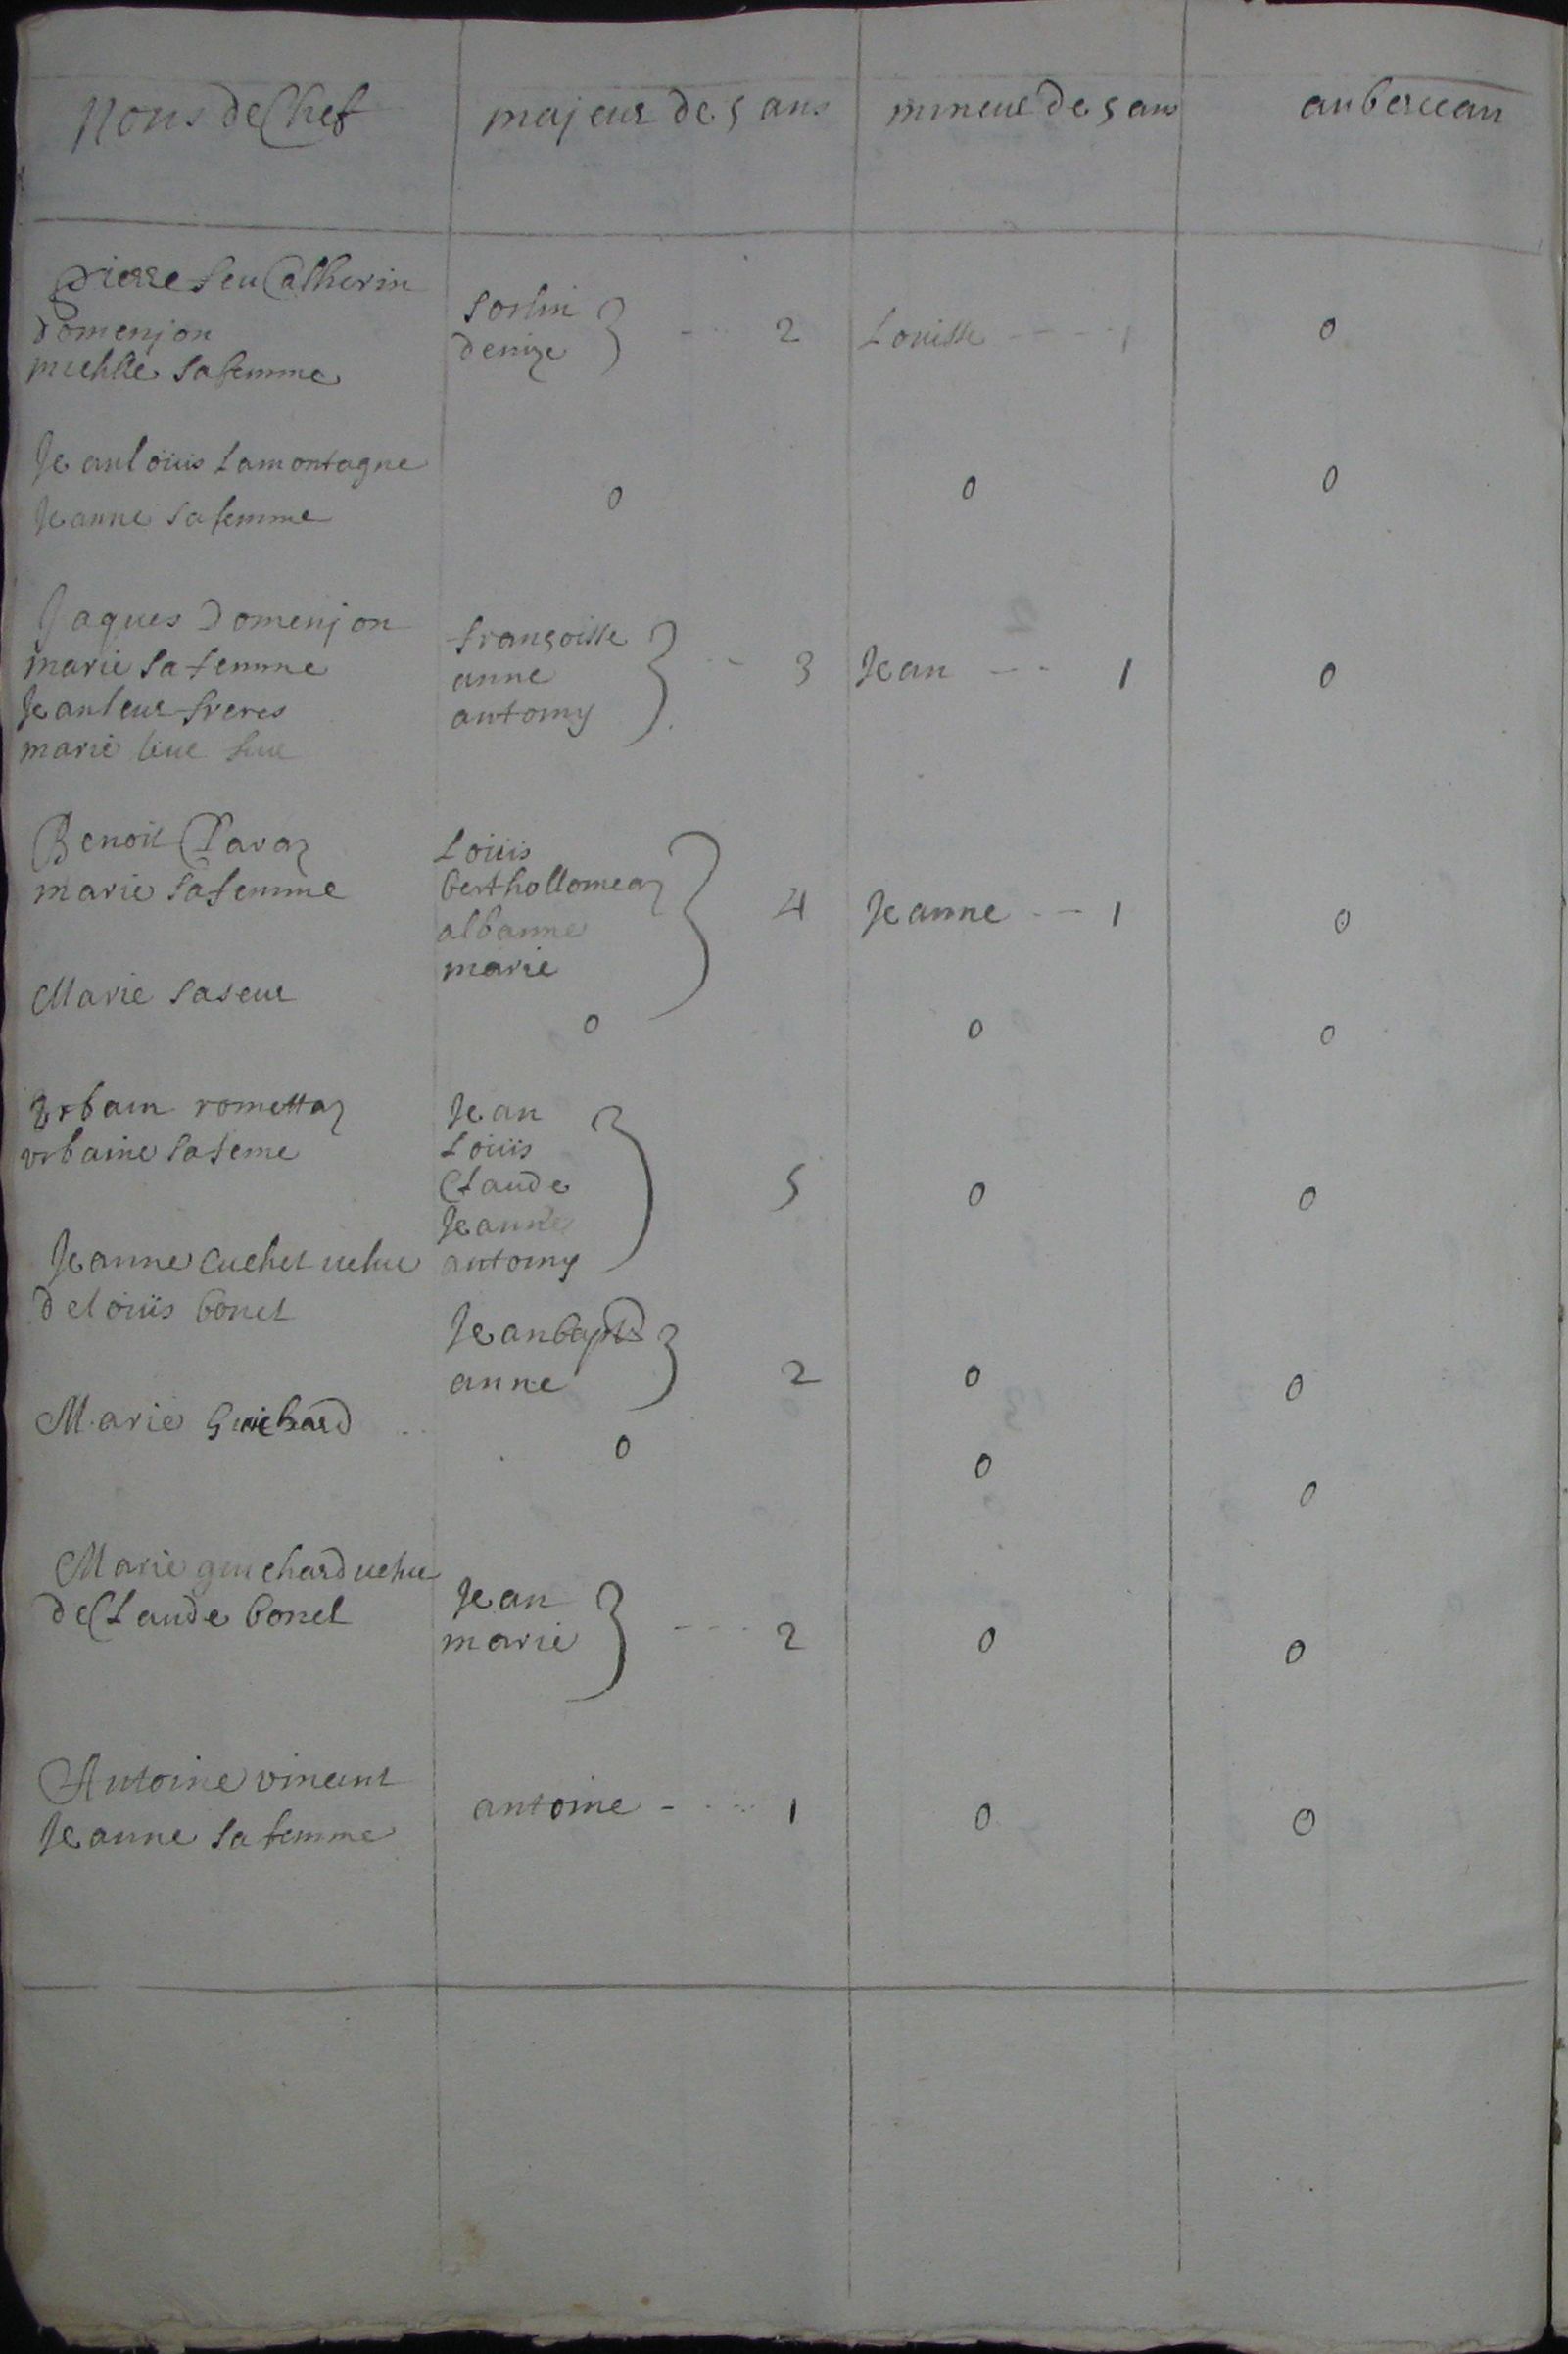 Noms de Chef majeur de 5 ans mineur de 5 ans au berceau
Pierre feu Catherin
Domenjon
michlle sa femme
Sorlin
denize } 2 Louisse 1 0
Jean loüis Lamontagne
Jeanne sa femme 0 0 0
Jaques Domenjon
marie sa femme
Jean leur freres
marie leur
françoisse
anne
antoiny } 3 Jean 1 0
Benoit Paraz
marie sa femme
Loüis
berthollomeaz
albanne
marie } 4 Jeanne 1 0
Marie sa seur 0 0 0
Urbain romettaz
urbaine sa feme
Jean
Loüis
Claude
Jeanne
antoiny } 5 0 0
Jeanne Cuchet uefue
de loüis bonet
Jean bapt
anne } 2 0 0
Marie Guichard 0 0 0
Marie guichard uefue
de Claude bonet
Jean
marie } 2 0 0
Antoine vincent
Jeanne sa femme
antoine 1 0 0